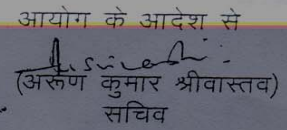 आयोग के आदेश से
(अरूण कुमार श्रीवास्तव)
सचिव